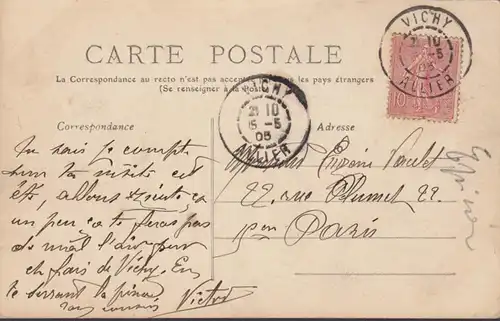 CARTE POSTALE
La Correspondance au recto n'est pas acceptée les pays étrangers
(Se renseigner à la Poste)
VICHY
21 10
5 -5
05
ALLIER
VICHY
21 10
-5
05
ALLIER
10
Correspondance
Adresse
Tu sais je compte
sur ta visite cet
été, allons
un peu ça te fera pas
de mal l'air pur
et frais de Vichy. En
te serrant la
Victor
Monsieur
22, rue Plumet 22.
Paris